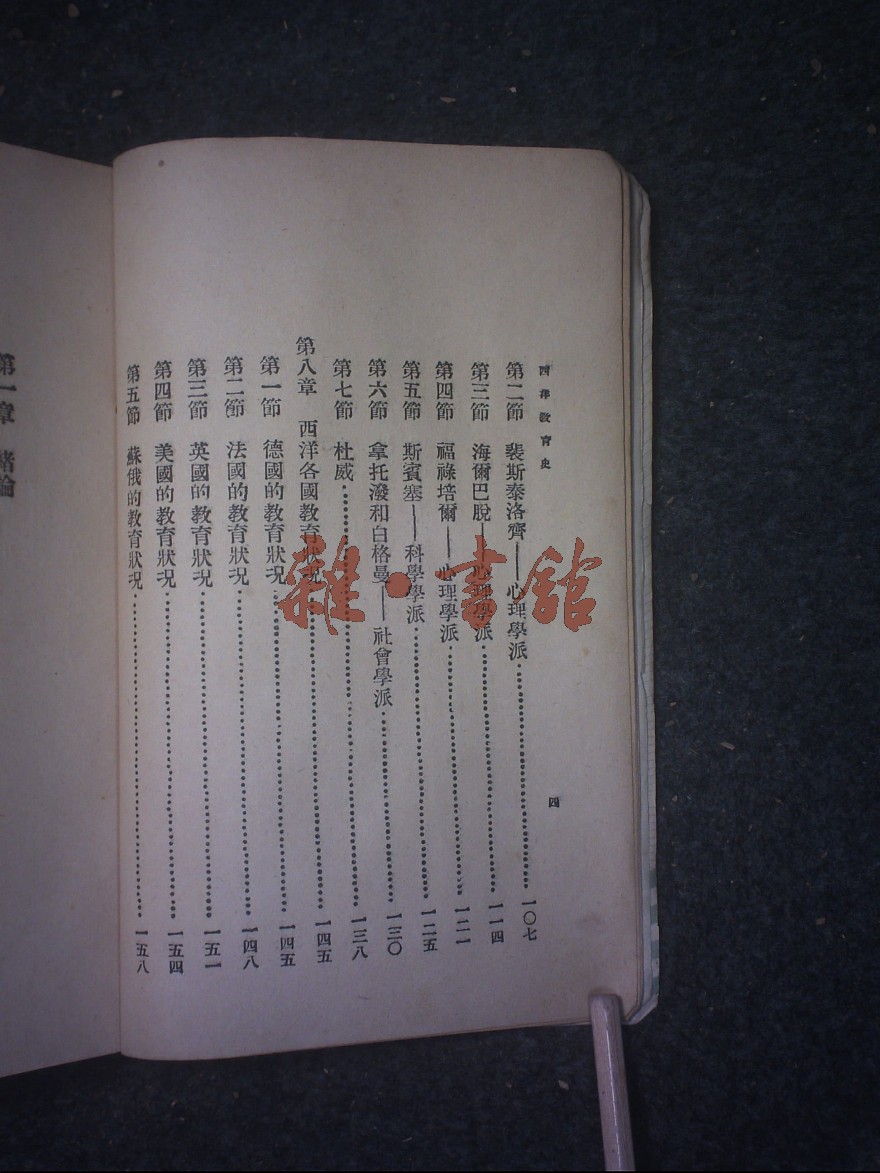 西洋教育史
四
第二節　裴斯泰洛齊——心理學派…………一〇七
第三節　海爾巴脫——心理學派…………一一四
第四節　福祿培爾——心理學派…………一二一
第五節　斯賓塞——科學學派…………一二五
第六節　拿托潑和白格曼——社會學派…………一三〇
第七節　杜威…………一三八
第八章　西洋各國教育狀況…………一四五
第一節　德國的教育狀況…………一四五
第二節　法國的教育狀況…………一四八
第三節　英國的教育狀況…………一五一
第四節　美國的教育狀況…………一五四
第五節　蘇俄的教育狀況…………一五八
第一章　緒論
雜·書館